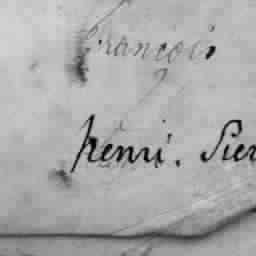 François
henri. Pier